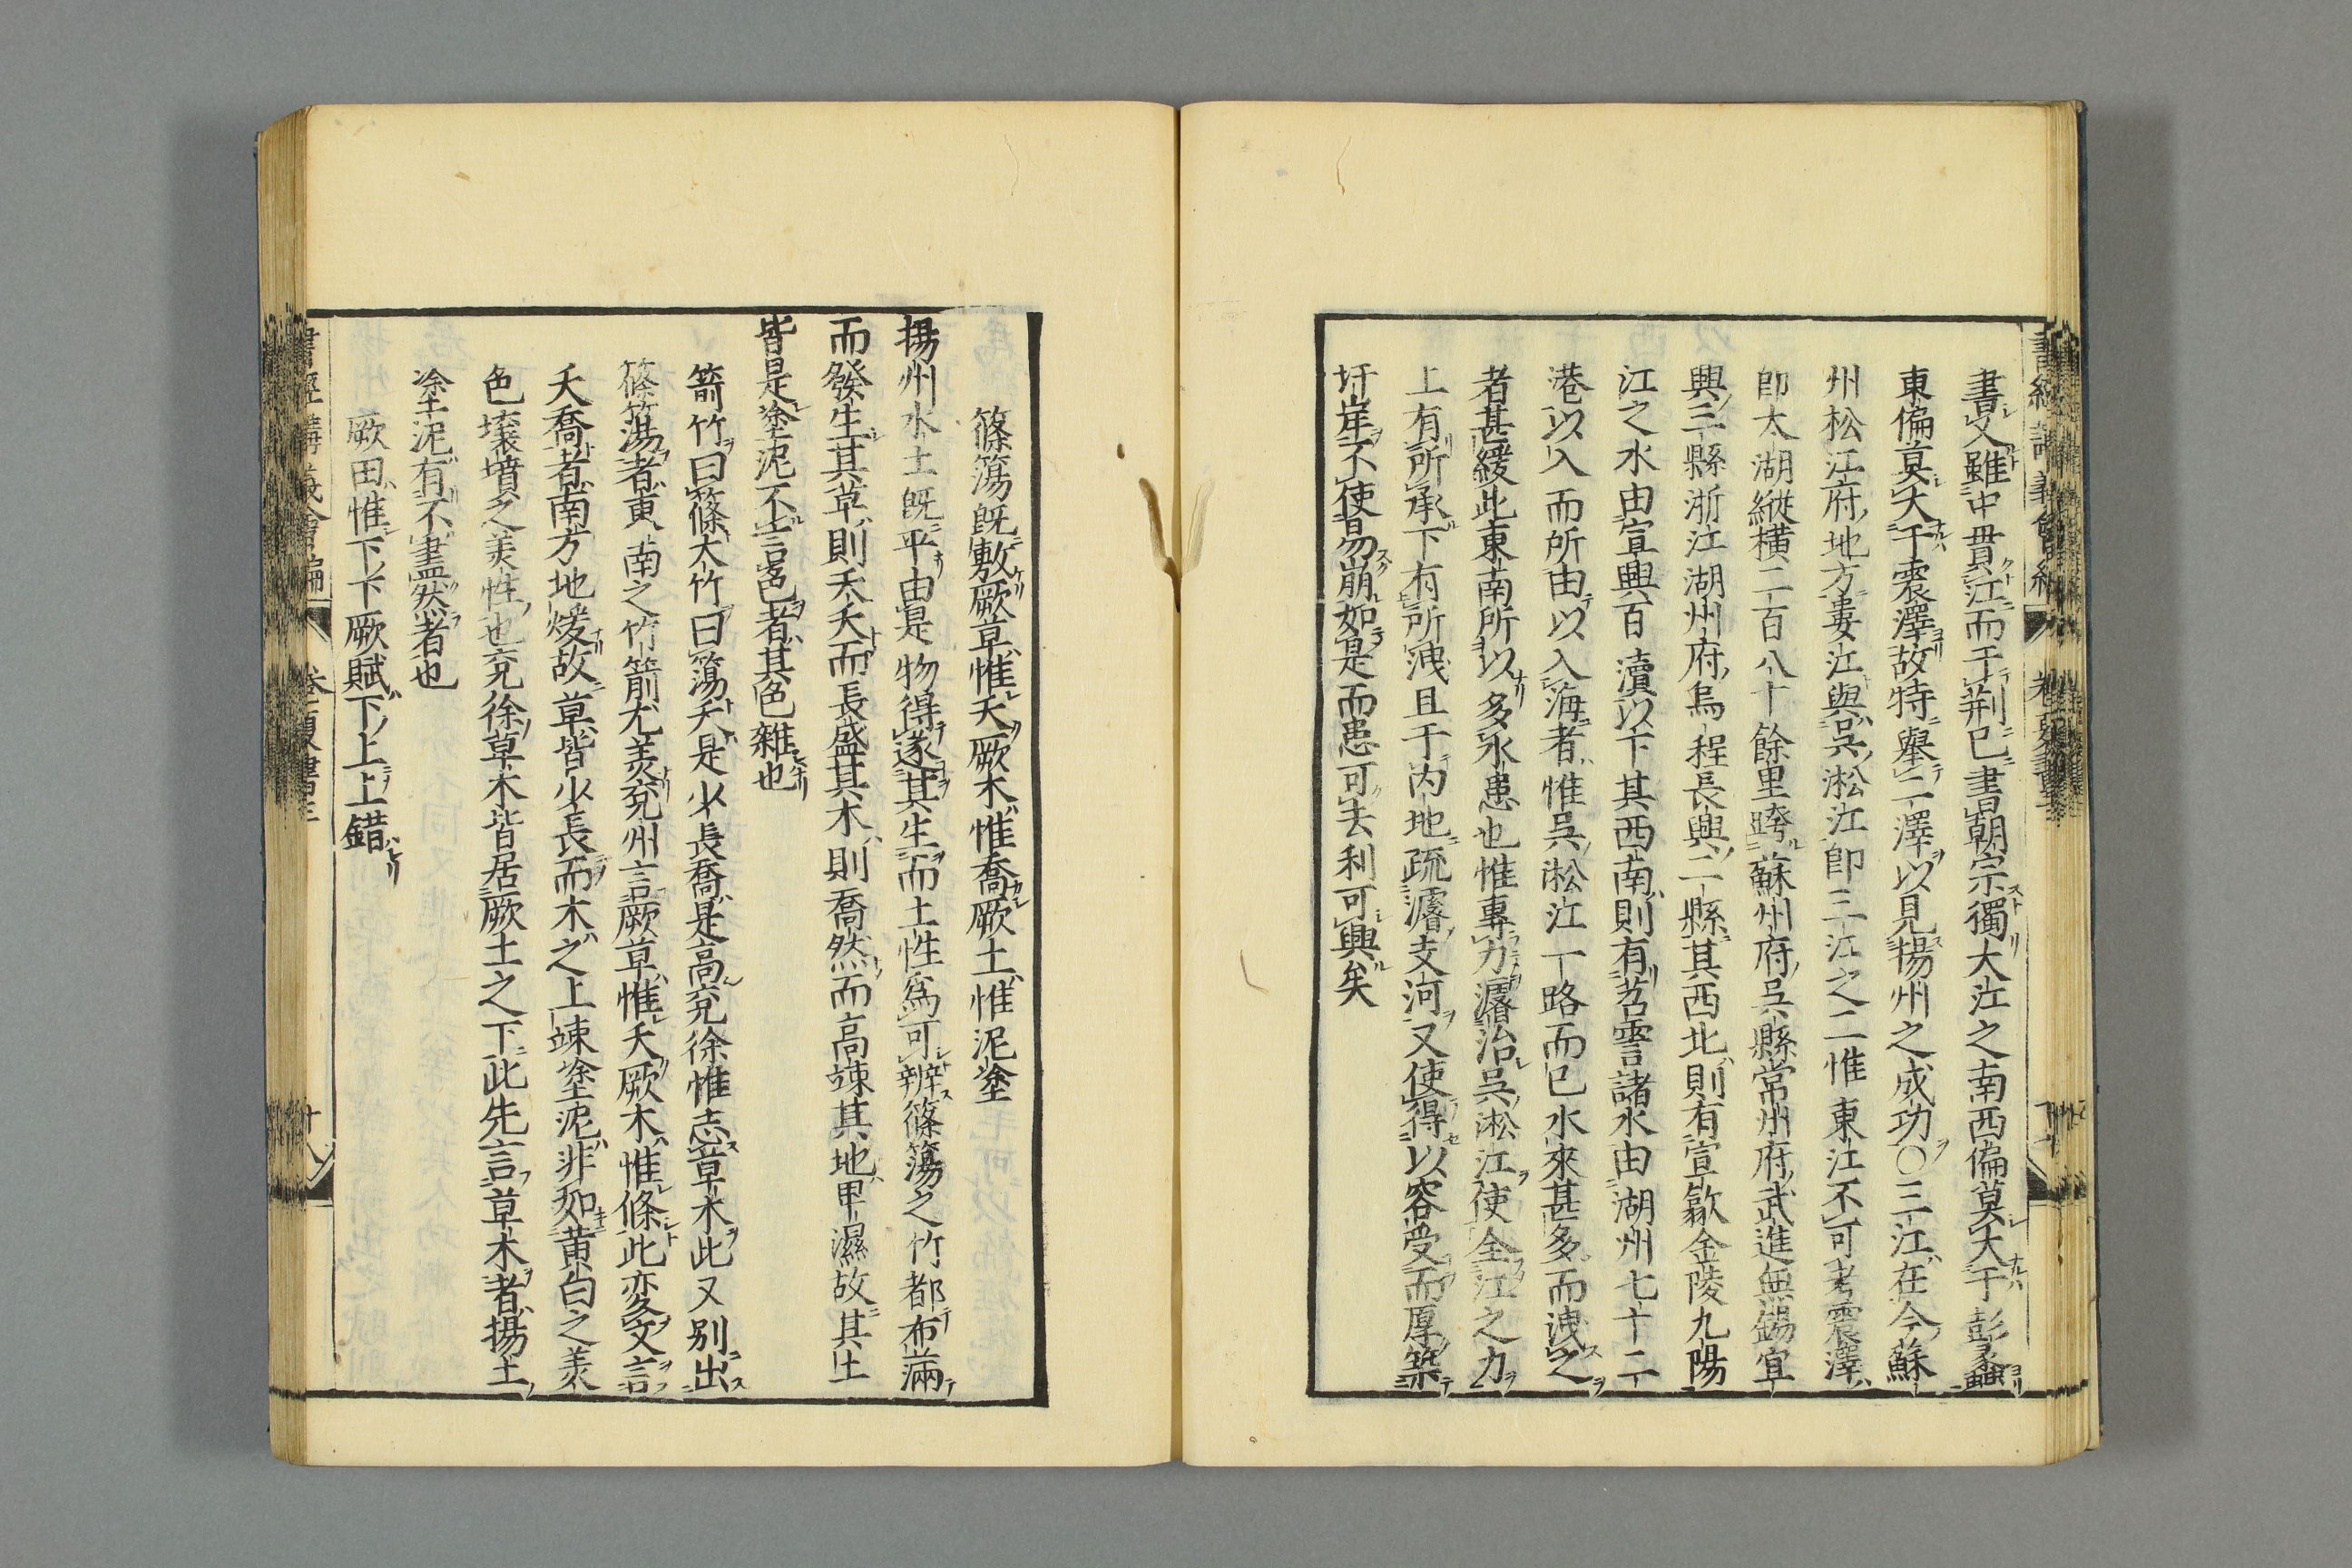 書又雖中貫江而于荆已書朝宗獨大江之南西偏莫大于彭蠡
東偏莫大于震澤故特舉二澤以見揚州之成功〇三江在今蘇
州松江府地方婁江與吳淞江卽三江之二惟東江不可考震澤
卽太湖縱橫二百八十餘里跨蘇州府吳縣常州府武進無錫宜
興三縣浙江湖州府烏程長興二縣其西北則有宣歙金陵九陽
江之水由宜興百瀆以下其西南則有苕霅諸水由湖州七十二
港以入而所由以入海者惟吳淞江一路而已水來甚多而洩之
者甚緩此東南所以多水患也惟專力濬治吳淞江使全江之力
上有所承下有所洩且于内地疏濬支河又使得以容受而厚築
圩岸不使易崩如是而患可去利可興矣
篠簜旣敷厥草惟夭厥木惟喬厥土惟泥塗
揚州水土旣平由是物得遂其生而土性爲可辨篠簜之竹都布滿
而發生其草則夭夭而長盛其木則喬然而高竦其地卑濕故其土
皆是塗泥不言色者其色雜也
箭竹曰篠大竹曰簜夭是少長喬是高兖徐惟志草木此又别出
篠簜者東南之竹箭尤美兖州言厥草惟夭厥木惟條此変文言
夭喬者南方地煖故草皆少長而木之上竦塗泥非如黄白之美
色壤墳之美性也兖徐草木皆居厥土之下此先言草木者揚土
塗泥有不盡然者也
厥田惟下下厥賦下上上錯
書經講義會編 卷三夏書 十八